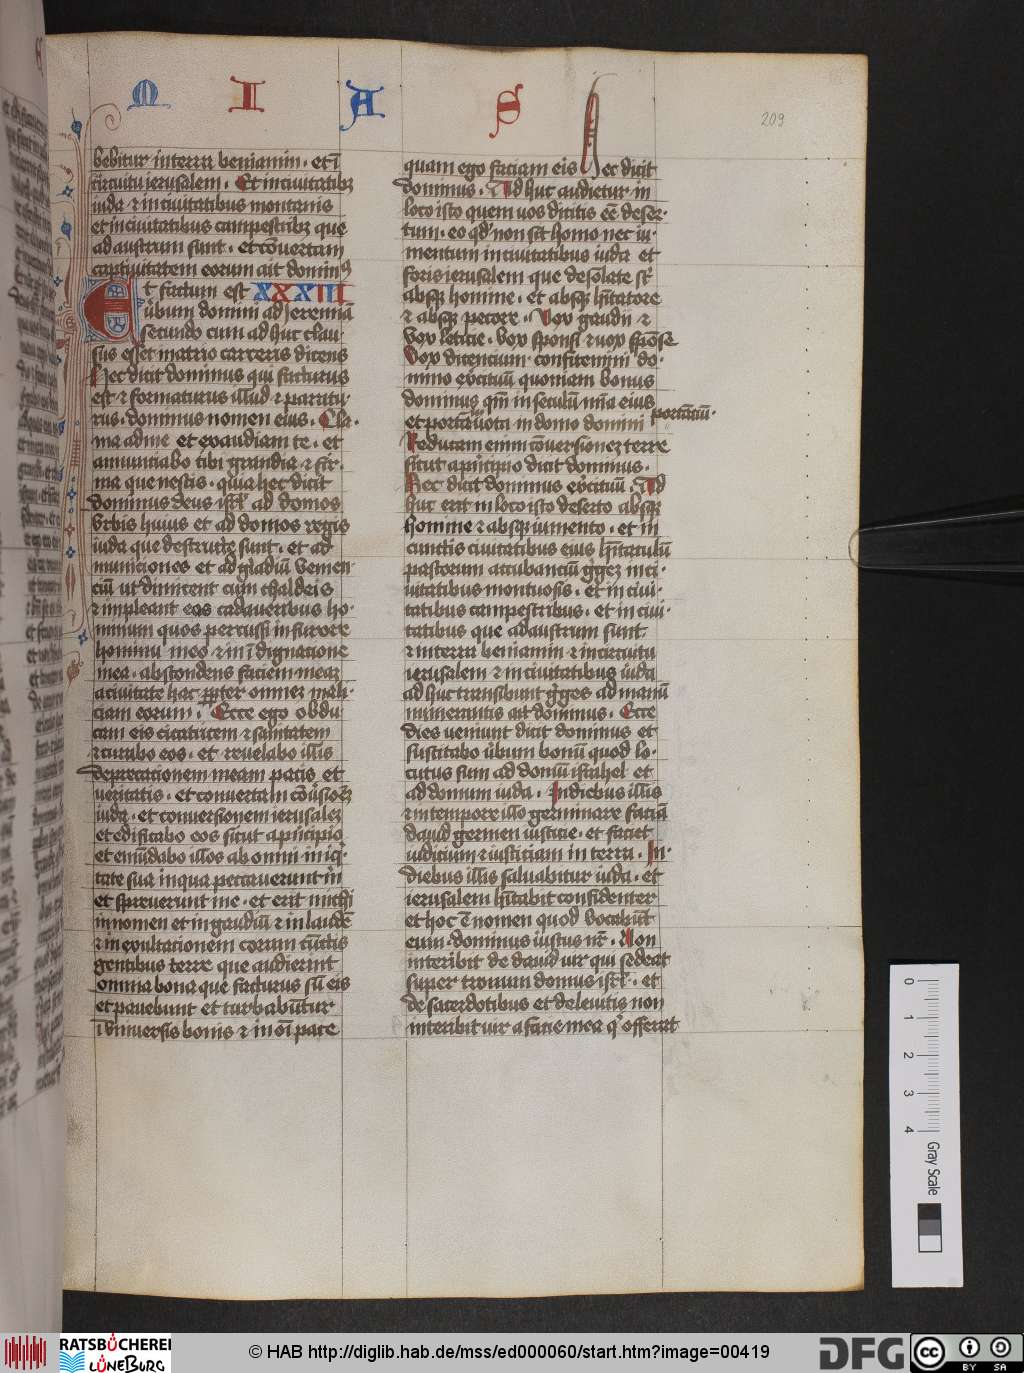 M I A S
209
bebitur in terra beniamin. et ī
circuitu ierusalem. Et in ciuitatibz
iuda ⁊ in ciuitatibus montanis
et in ciuitatibus campestribz que
ad austrum sunt. et cōuertam
captiuitatem eorum ait dominꝰ
Et factum est XXXIII
ūbum domini ad Jeremiā
secundo cum ad huc clau-
sus esset in atrio carceris dicens
Hec dicit dominus qui facturus
est ⁊ formaturus illud ⁊ paratu-
rus. dominus nomen eius. Cla-
ma ad me et exaudiam te. et
annunciabo tibi grandia ⁊ fir-
ma que nescis. quia hec dicit
dominus deus isrl' ad domos
vrbis huius et ad domos regis
iuda que destructe sunt. et ad
municiones et ad gladiū venien-
ciū ut dimicent cum chaldeis
⁊ impleant eos cadaueribus ho-
minum quos percussi in furore
hominū meo ⁊ in ī dignacione
mea. abscondens faciem mea
a ciuitate hac ꝓpter omnem mali-
ciam eorum. Ecce ego obdu
cam eis cicatricem ⁊ sanitatem
⁊ curabo eos. et reuelabo illis
deprecationem meam pacis et
ueritatis. et conuertam cōūsionez
iuda. et conuersionem ierusalez
et edificabo eos sicut a principio
et emūdabo illos ab omni iniq̇-
tate sua in qua peccauerunt m̄
et spreuerunt me. et erit michi
in nomen et in gaudiū ⁊ in laudē
⁊ in exultationem eorum cūctis
gentibus terre que audierint
omnia bona que facturus sū eis
et pauebunt et turbabūtur
ī vniuersis bonis ⁊ in oī pace
quam ego faciam eis Hec dicit
dominus. Ad huc audietur in
loco isto quem uos dicitis eē deser-
tum. eo qd' non sit homo nec iu-
mentum in ciuitatibus iuda et
foris ierusalem que desolate st̄
absqz homine. et absqz h̄itatore
⁊ absqz pecore. Vox gaudii ⁊
vox leticie. vox sponsi ⁊ uox spōse
Vox dicencium confitemini do-
mino exercituū quoniam bonus
dominus qm̄ in seculū mīa eius
et portāciū uota in domo domini portātiū.
Reducam enim cōuersionez terre
sicut a principio dicit dominus.
Hec dicit dominus exercituū. Ad
huc erit in loco isto deserto absqz
homine ⁊ absqz iumento. et in
cunctis ciuitatibus eius h̄itaculū
pastorum accubanciū gregez in ci-
uitatibus montuosis. et in ciui-
tatibus campestribus. et in ciui-
tatibus que ad austrum sunt
⁊ in terra beniamin ⁊ in circuitu
ierusalem ⁊ in ciuitatibus iuda
ad huc transibunt greges ad manū
numerantis ait dominus. Ecce
dies ueniunt dicit dominus et
suscitabo ūbum bonū quod lo-
cutus sum ad domū israhel et
ad domum iuda. In diebus illis
⁊ in tempore illo germinare faciā
dauid germen iusticie. et faciet
iudicium ⁊ iusticiam in terra. In
diebus illis saluabitur iuda. et
ierusalem h̄itabit confidenter
et hoc ē nomen quod vocabūt
eum. dominus iustus nr̄. Non
interibit de dauid uir qui sedeat
super tronum domus isrl'. et
de sacerdotibus et de leuitis non
interibit uir a facie mea q' offerat
0 1 2 3 4
Gray Scale
RATSBÜCHEREI
LÜNEBURG
© HAB http://diglib.hab.de/mss/ed000060/start.htm?image=00419
DFG
cc BY SA